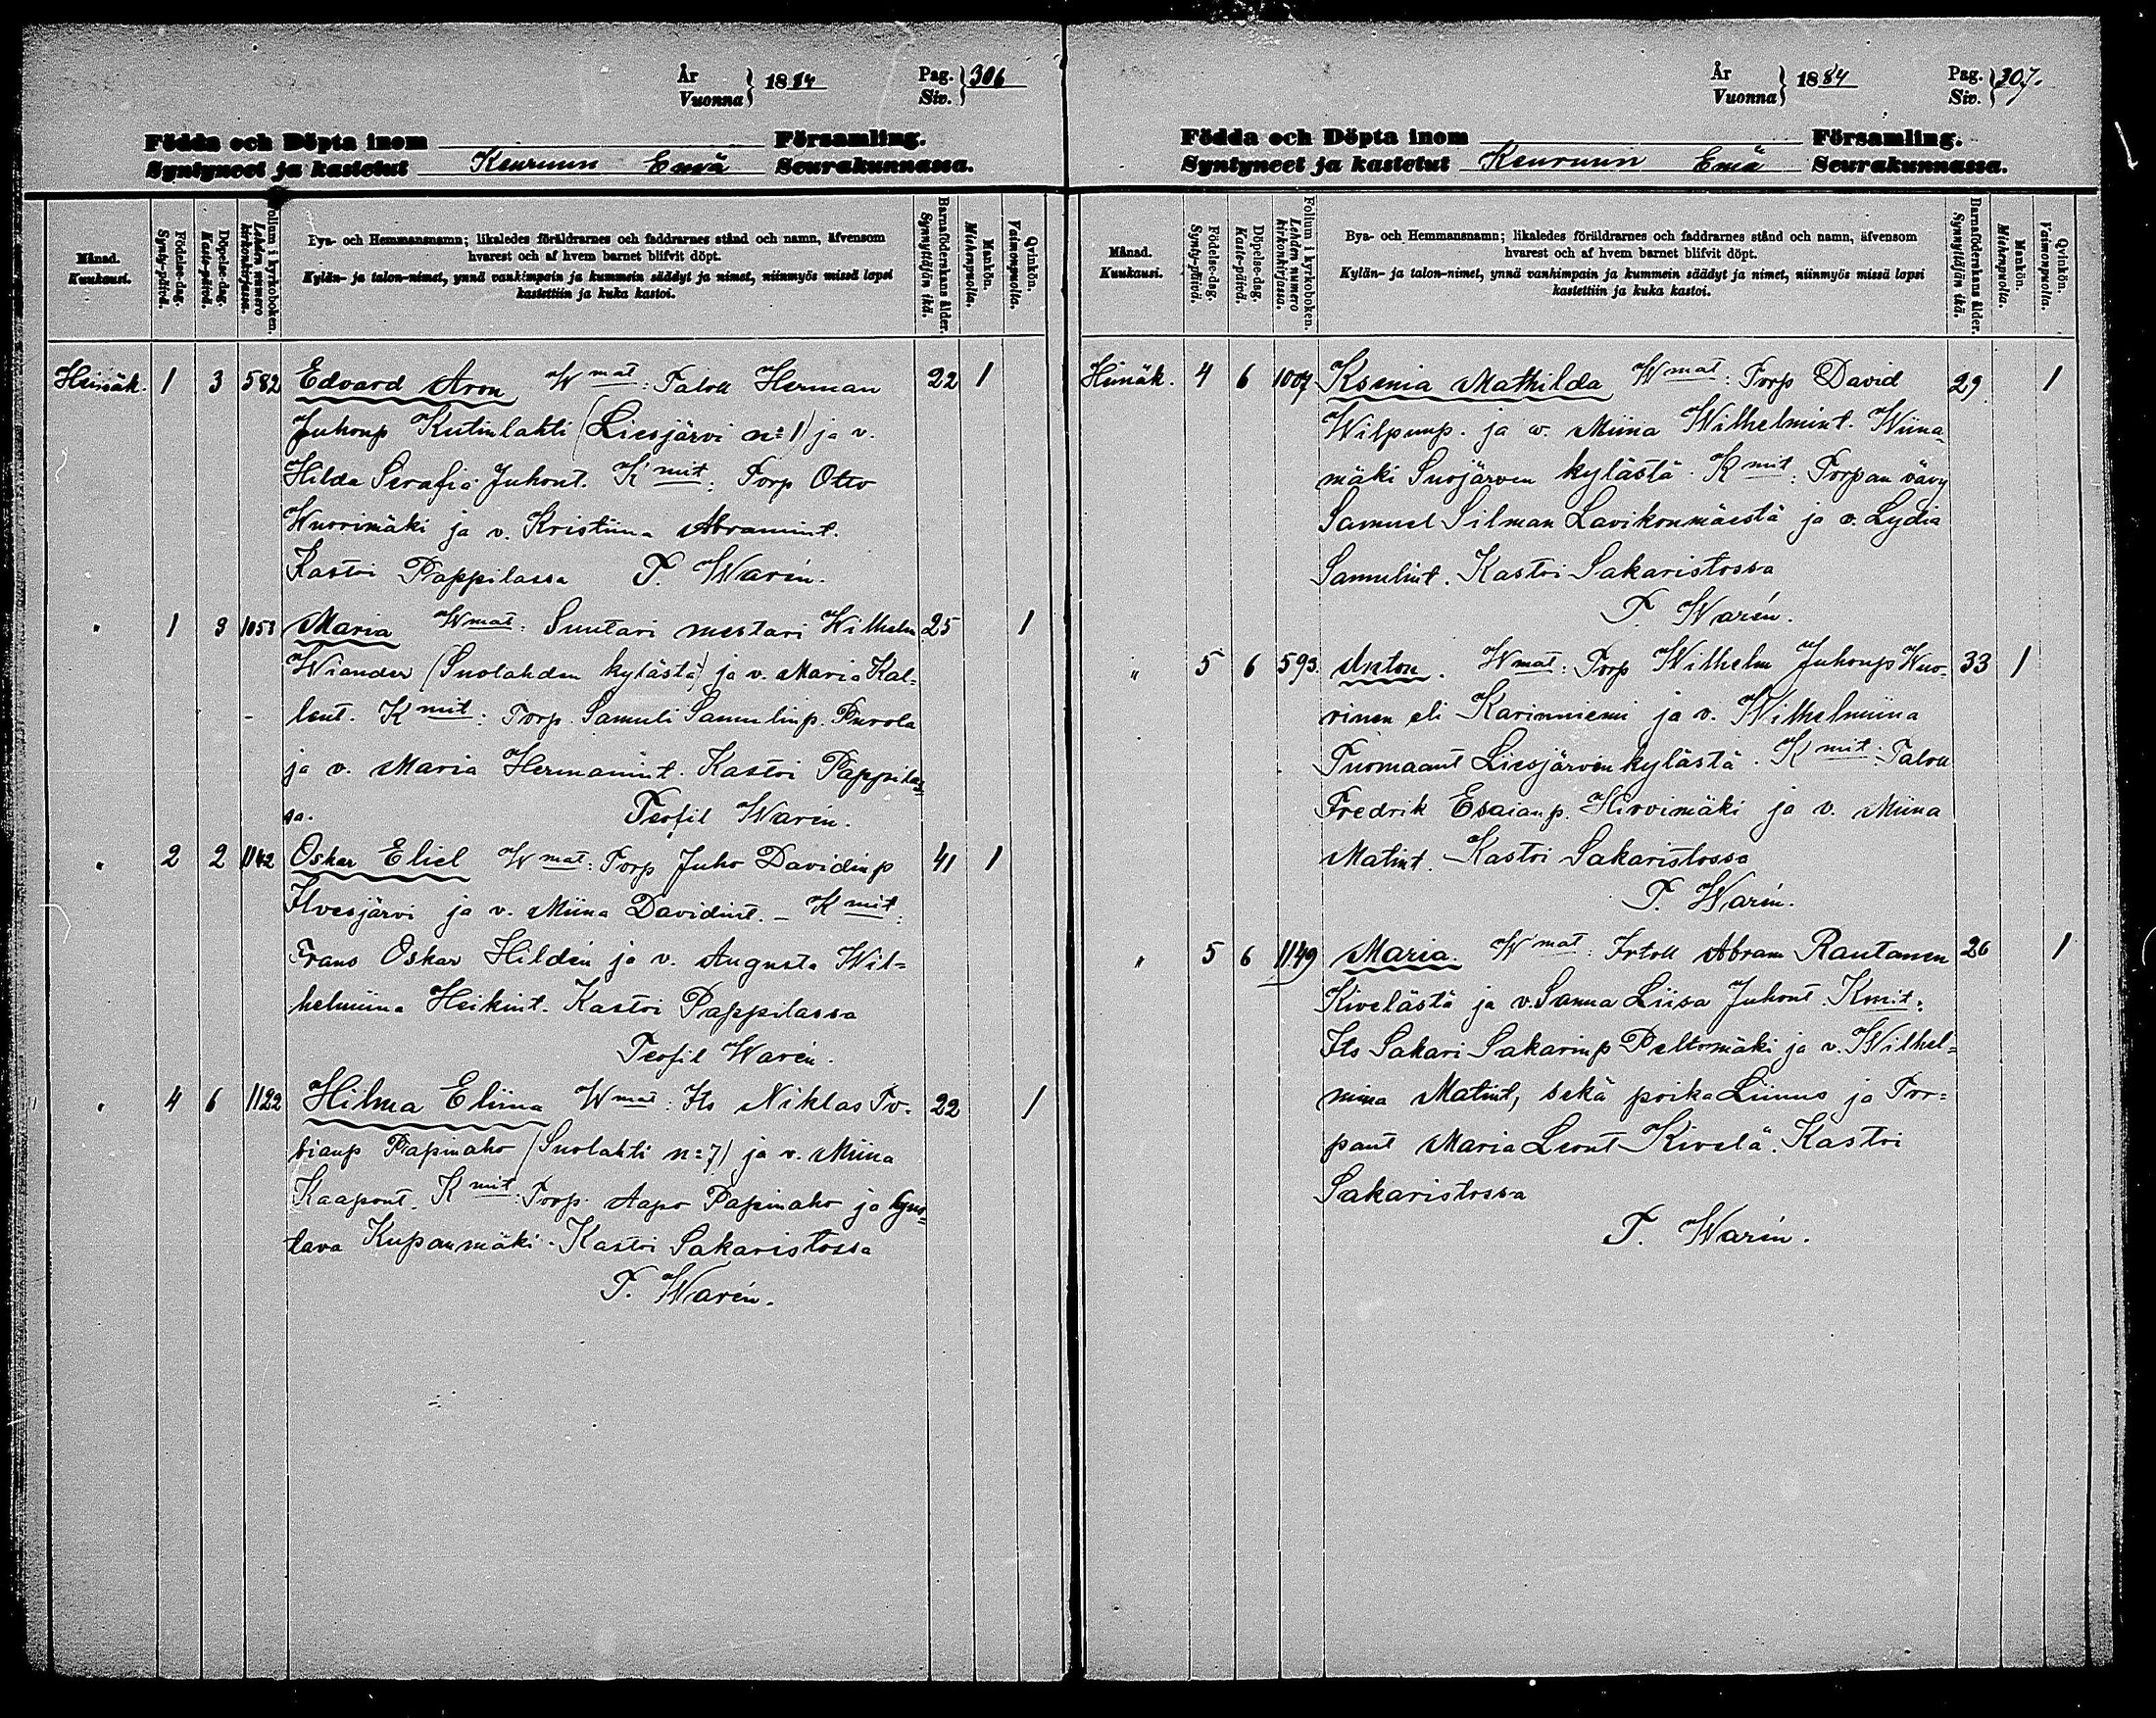 År
Vuonna } 1884 Pag.
Siv. } 306
Födda och Döpta inom Församling.
Syntyneet ja kastetut Keuruun Emä Seurakunnassa.
Månad.
Kuukausi.
Födelse-dag.
Synty-päivä.
Döpelse-dag.
Kaste-päivä.
Folium i kyrkoboken.
Lehden numero
kirkonkirjassa.
Bya- och Hemmansnamn; likaledes föräldrarnes och faddrarnes stånd och namn, äfvensom
hvarest och af hvem barnet blifvit döpt.
Kylän- ja talon-nimet, ynnä vanhimpain ja kummein säädyt ja nimet, niinmyös missä lapsi
kastettiin ja kuka kastoi.
Barnaföderskans ålder.
Synnyttäjän ikä.
Mankön.
Miehenpuolta.
Qvinkön.
Vaimonpuolta.
Heinäk. 1 3 582 Edvard Aron Wmat: Taloll Herman 22 1
Juhonp Kutinlahti (Liesjärvi n:1) ja v.
Hilda Serafia Juhont. Kmit: Torp Otto
Wuorimäki ja v. Kristiina Abramint.
Kastoi Pappilassa T. Warén.
" 1 3 1053 Maria Wmat: Suutari mestari Wilhelm 25 1
Wiander (Suolahden kylästä) ja v. Maria Kal=
lent. Kmit: Torp. Samuli Samulinp. Purola
ja v. Maria Hermanint. Kastoi Pappilas
sa. Teofil Warén.
" 2 2 1142 Oskar Eliel Wmat: Torp Juho Davidinp 41 1
Ilvesjärvi ja v. Miina Davidint. - Kmit:
Frans Oskar Hildén ja v. Augusta Wil=
helmiina Heikint. Kastoi Pappilassa
Teofil Warén.
" 4 6 1122 Hilma Eliina Wmat: Its Niklas To- 22 1
bianp Papinaho (Suolahti n:7) ja v. Miina
Kaapont. Kmit: Torp. Aapo Papinaho ja Gus=
tava Kupanmäki. Kastoi Sakaristossa
T. Warén.
År
Vuonna } 1884 Pag.
Siv. } 307.
Födda och Döpta inom Församling.
Syntyneet ja kastetut Keuruun Emä Seurakunnassa.
Månad.
Kuukausi.
Födelse-dag.
Synty-päivä.
Döpelse-dag.
Kaste-päivä.
Folium i kyrkoboken.
Lehden numero
kirkonkirjassa.
Bya- och Hemmansnamn; likaledes föräldrarnes och faddrarnes stånd och namn, äfvensom
hvarest och af hvem barnet blifvit döpt.
Kylän- ja talon-nimet, ynnä vanhimpain ja kummein säädyt ja nimet, niinmyös missä lapsi
kastettiin ja kuka kastoi.
Barnaföderskans ålder.
Synnyttäjän ikä.
Mankön.
Miehenpuolta.
Qvinkön.
Vaimonpuolta.
Heinäk. 4 6 1007 Ksenia Mathilda Wmat: Torp David 29 1
Wilpunp. ja w. Miina Wilhelmint. Wiina-
mäki Suojärven kylästä. Kmit: Torpan vävy
Samuel Silman Lavikonmäestä ja v. Lydia
Samulint. Kastoi Sakaristossa
T. Warén.
" 5 6 593. Anton. Wmat: Torp Wilhelm Juhonp Wuo- 33 1
rinen eli Karinniemi ja v. Wilhelmiina
Tuomaant Liesjärven kylästä. Kmit: Taloll
Fredrik Esaianp. Hirvimäki ja v. Miina
Matint. Kastoi Sakaristossa
T. Warén.
" 5 6 1149 Maria. Wmat: Irtoll Abram Rautanen 26 1
Kivelästä ja v. Sanna Liisa Juhont. Kmit:
Its Sakari Sakarinp Peltomäki ja v. Wilhel=
mina Matint, sekä poika Liinus ja Tor=
pant Maria Leont Kivelä. Kastoi
Sakaristossa
T. Warén.